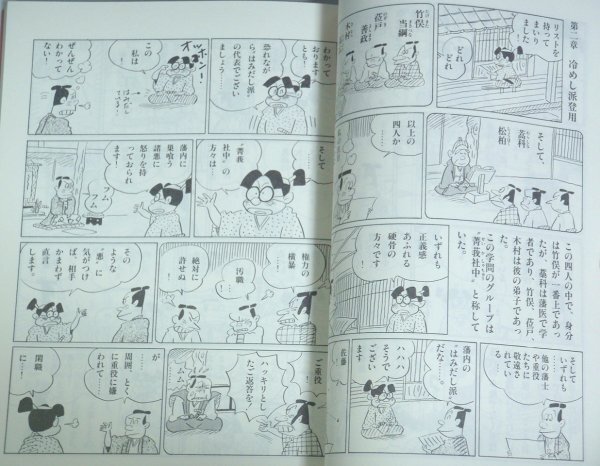 第二章 冷めし派登用
リストを
持って
まいり
ました
どれ
どれ
竹俣
当綱
莅戸
善政
木村
……
そして、
藁科
松柏
以上の
四人か
……
この四人の中で、身分
は竹俣が一番上であっ
たが、藁科は藩医で学
者であり、竹俣、莅戸、
木村は彼の弟子であっ
た。
この学問のグループは
“菁莪社中”と称して
いた。
いずれも
正義感
あふれる
硬骨の
方々です
そして
いずれも
他の藩士
や重役
たちに
敬遠さ
れてい
る…
藩内の
“はみだし派”
だな……。
ハハハ
そうで
ござい
ます
佐藤
……
わかって
おります
とも！
恐れなが
ら“はみだし派”
の代表でござい
ましょう……
オッホン！
この
私は
……！
はみだし
ぜんぜん
わかって
ない！
そして
……
“菁莪
社中”の
方々は…
藩内に
巣喰う
諸悪に
怒りを持
っておられ
ます！
フム
フム
権力の
横暴
……
汚職
……
絶対に
許せぬ！
その
ような
“悪”に
気がつけ
ば、相手
かまわず
直言
します。
ご重役
……！
ハッキリとし
たご返答を！
ムム
ム…
周囲、とく
に重役に嫌
われて……！
閑職
に
……